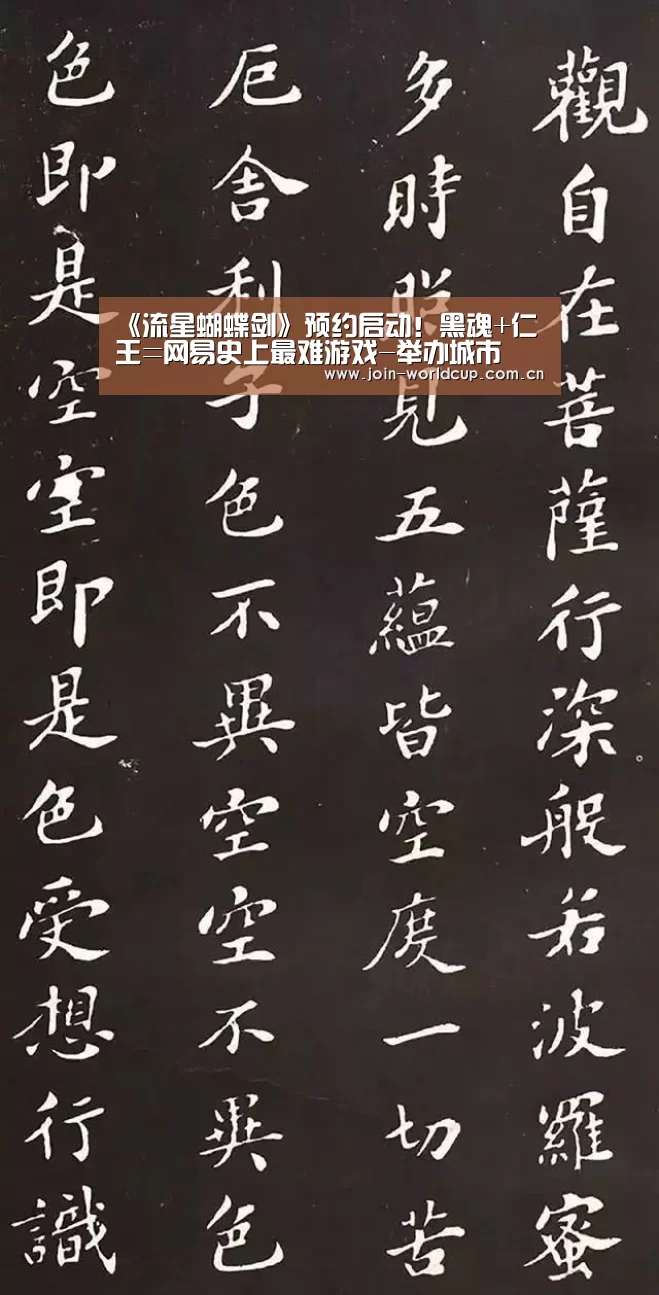 觀自在菩薩行深般若波羅蜜
多時照見五蘊皆空度一切苦
厄舍利子色不異空空不異色
色即是空空即是色受想行識
《流星蝴蝶剑》预约启动！黑魂+仁
王=网易史上最难游戏-举办城市
www.join-worldcup.com.cn